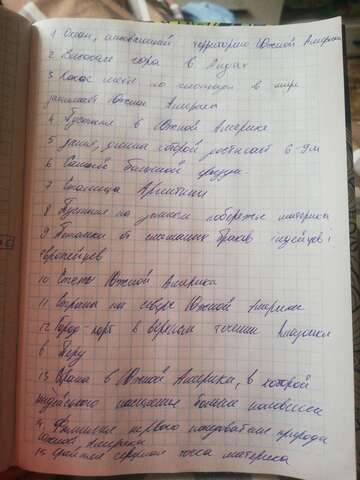 1 Океан, омывающий территорию Южной Америки
2 Высокая гора в Андах
3 Какое место по площади в мире
занимает Южная Америка
4 Пустыня в Южной Америке
5 Змея, длина которой достигает 6-9м
6 Самый большой грызун
7 Столица Аргентины
8 Пустыня на западном побережье материка
9 Потомки от смешанных браков индейцев и
европейцев
10 Степи Южной Америки
11 Страна на севере Южной Америки
12 Город-порт в верхнем течении Амазонки
в Перу
13 Страна в Южной Америке, в которой
индейского населения больше половины
14 Фамилия первого исследователя природы
Южной Америки
15 Крайняя северная точка материка